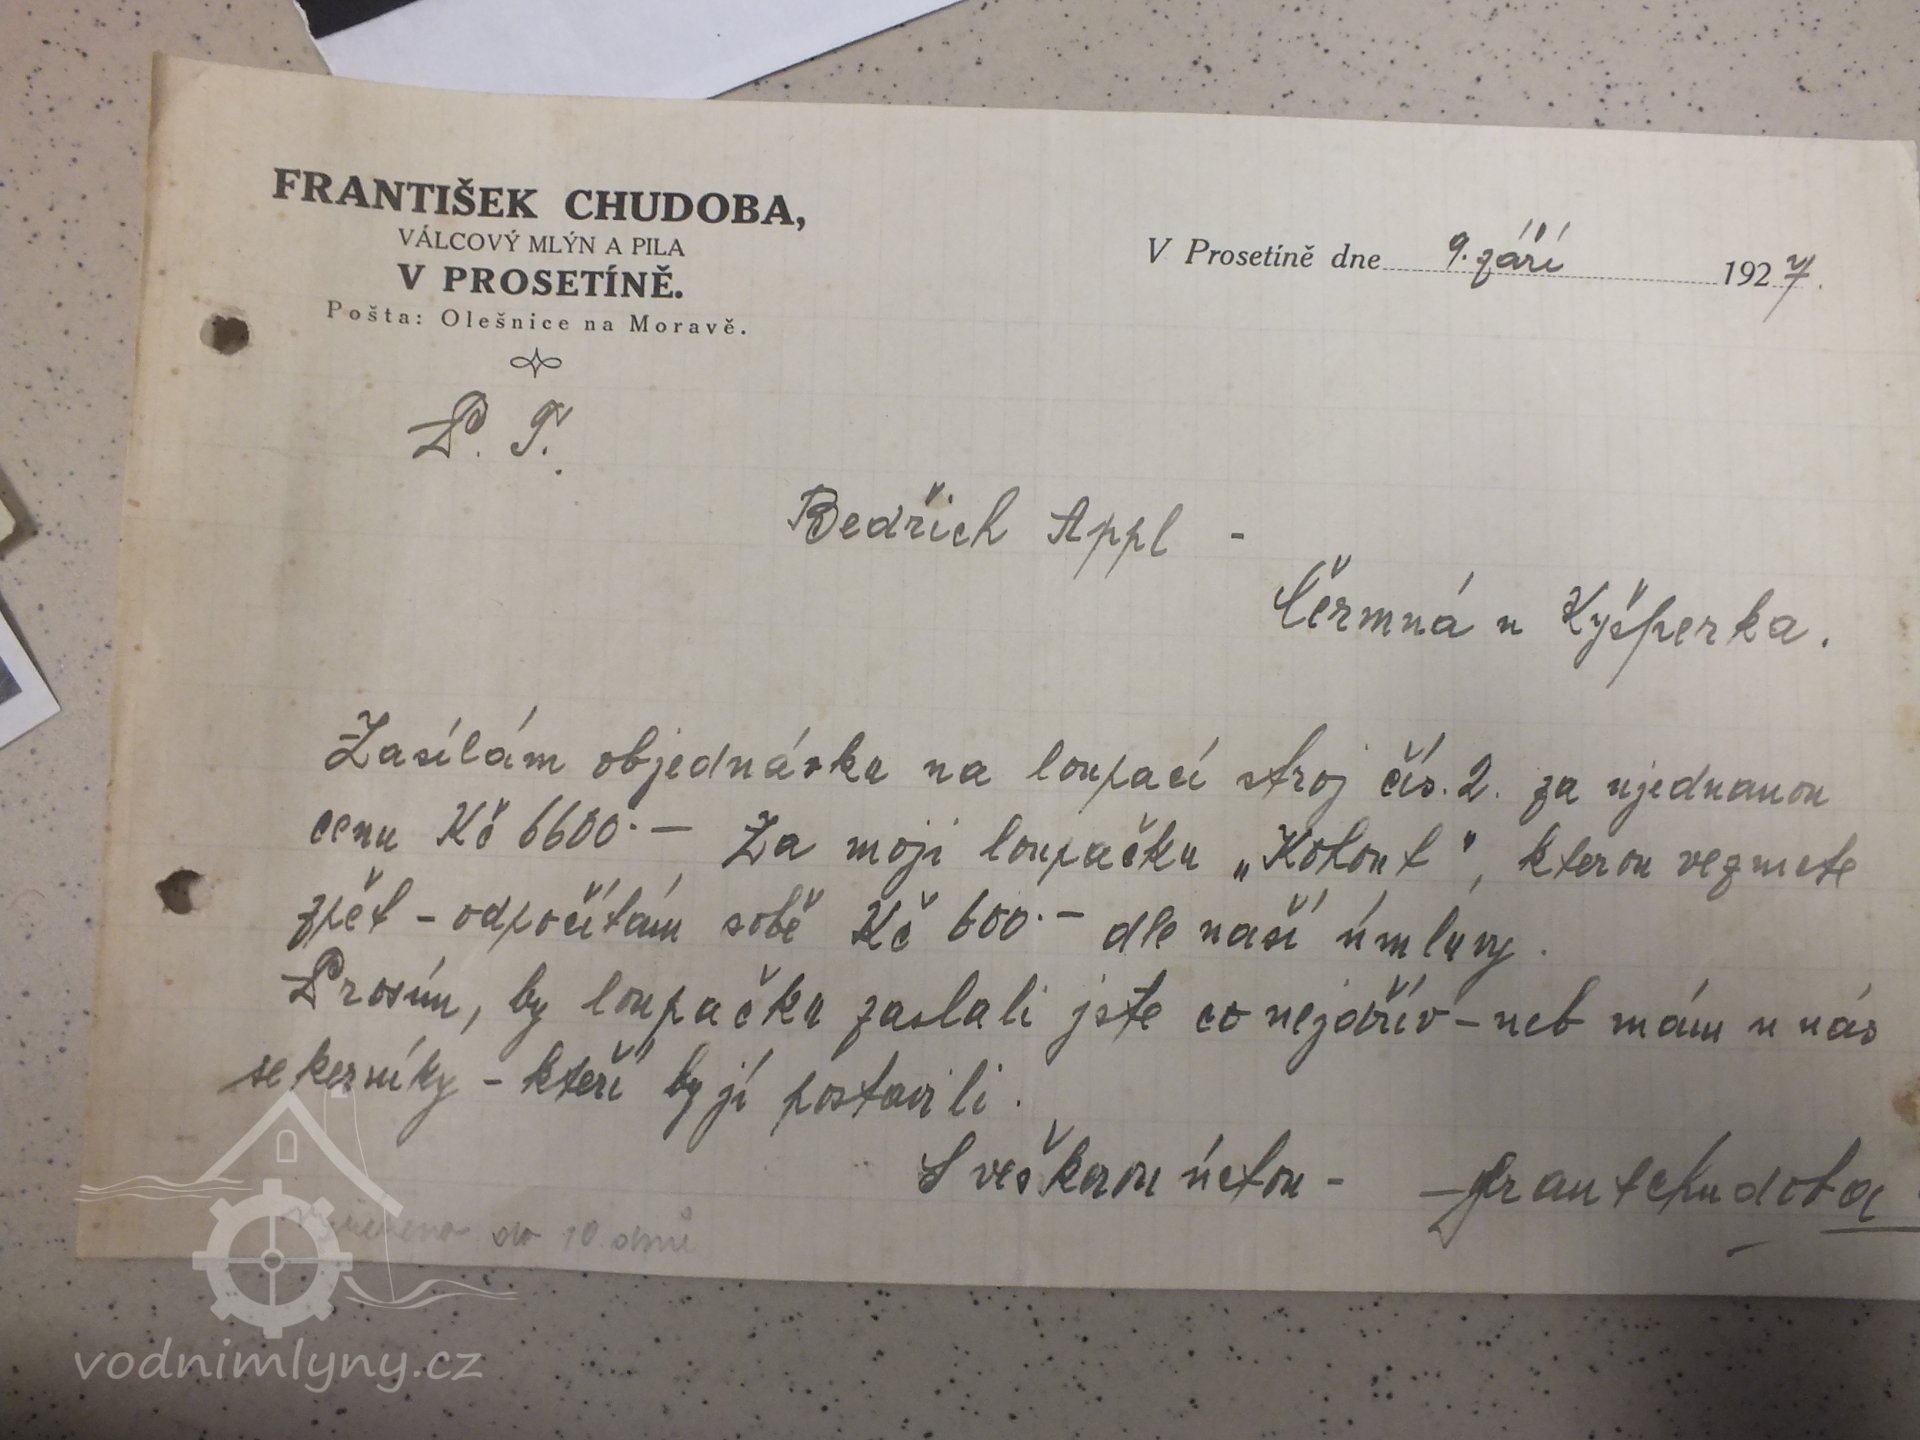 FRANTIŠEK CHUDOBA,
VÁLCOVÝ MLÝN A PILA
V PROSETÍNĚ.
Pošta: Olešnice na Moravě.
V Prosetíně dne 9. září 1927.
P. T.
Bedřich Appl -
Čermná u Kyšperka.
Zasílám objednávku na loupací stroj čís. 2. za ujednanou
cenu Kč 6600.— Za moji loupačku „Kohout", kterou vezmete
zpět - odpočítám sobě Kč 600.— dle naší úmluvy.
Prosím, by loupačku zaslali jste co nejdřív - neb mám u nás
sekerníky - kteří by jí postavili.
S veškerou úctou - Frant Chudoba
do 10 dnů
vodnimlyny.cz